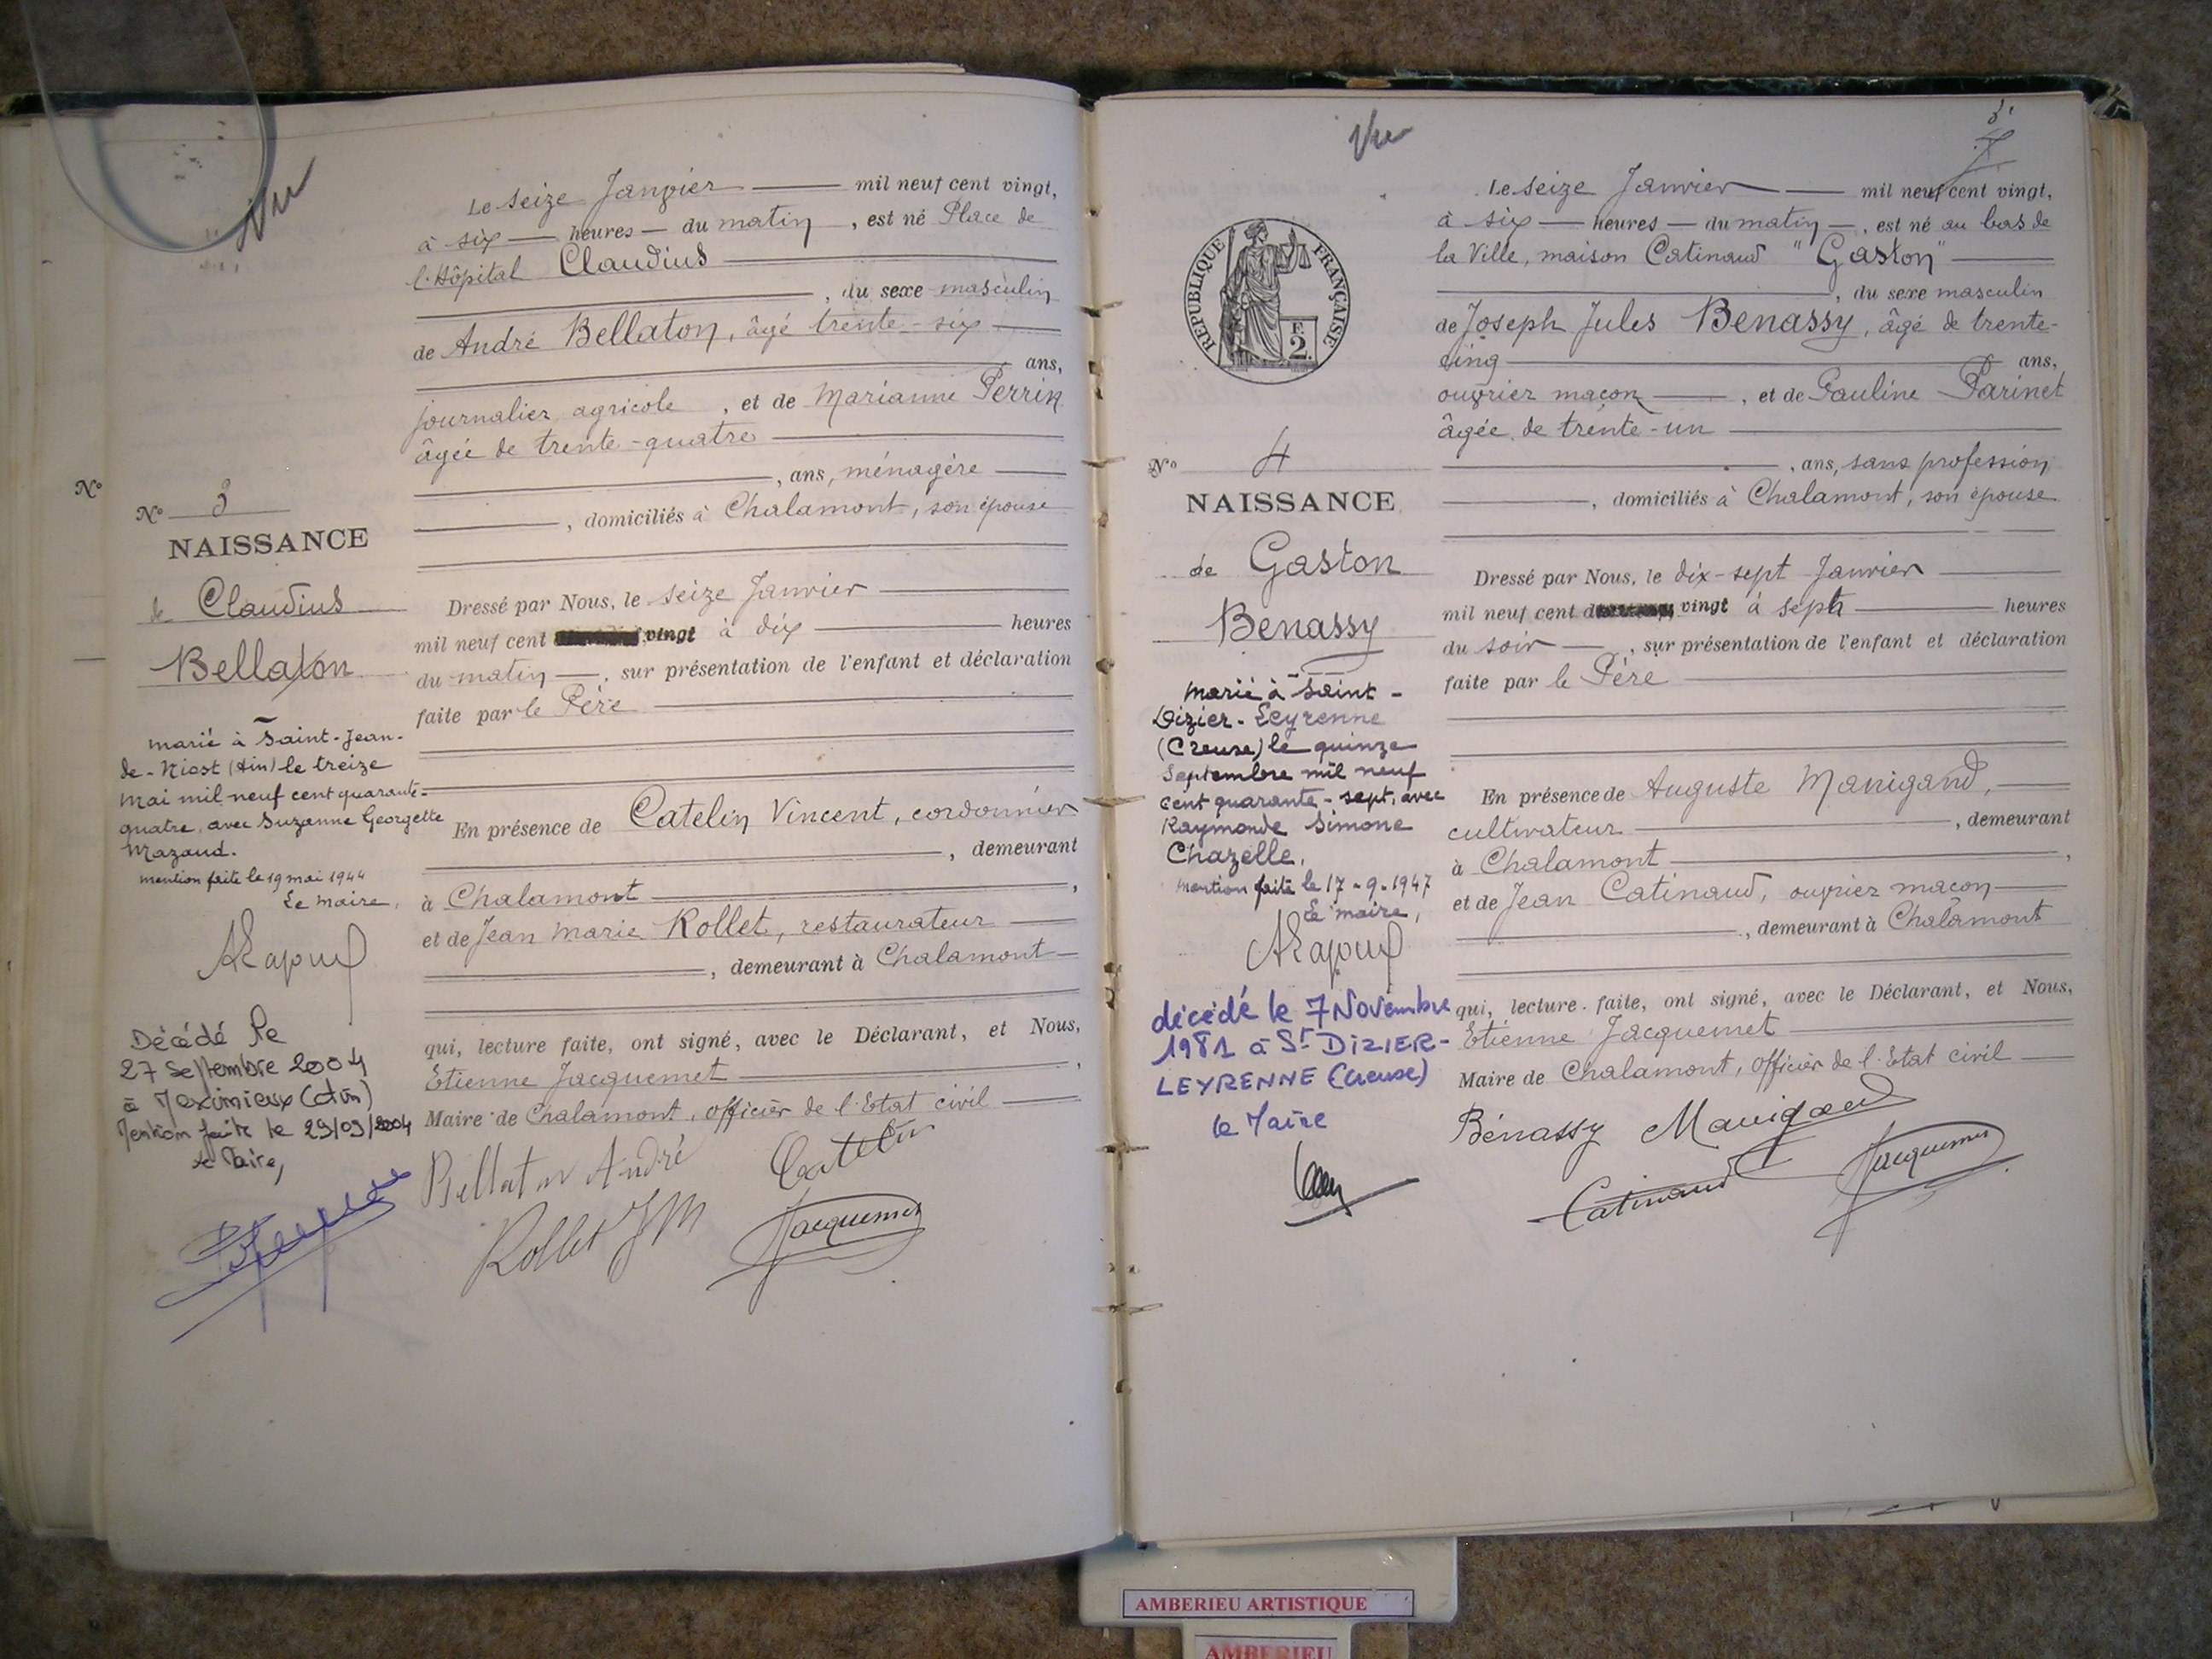 Vu
Le seize Janvier mil neuf cent vingt,
à six heures du matin, est né Place de
l'Hôpital Claudius
, du sexe masculin
de André Bellaton, âgé trente-six
ans,
journalier agricole, et de Marianne Perrin
âgée de trente-quatre
, ans, ménagère
, domiciliés à Chalamont, son épouse
N°
N° 3
NAISSANCE
de Claudius
Bellaton
Dressé par Nous, le seize Janvier
mil neuf cent vingt à dix heures
du matin, sur présentation de l'enfant et déclaration
faite par le Père
marié à Saint-Jean-
de-Niost (Ain) le treize
mai mil neuf cent quarante-
quatre, avec Suzanne Georgette
Mazaud.
mention faite le 19 mai 1944
Le maire,
En présence de Catelin Vincent, cordonnier
, demeurant
à Chalamont,
et de Jean Marie Rollet, restaurateur
, demeurant à Chalamont
Décédé le
27 septembre 2004
à Meximieux (Ain)
Mention faite le 29/09/2004
Le Maire,
qui, lecture faite, ont signé, avec le Déclarant, et Nous,
Etienne Jacquemet,
Maire de Chalamont, officier de l'Etat civil
Bellaton André Catelin
Rollet JM Jacquemet
Vu
Le seize Janvier mil neuf cent vingt,
à six heures du matin, est né au bas de
la Ville, maison Catinaud "Gaston"
, du sexe masculin
de Joseph Jules Benassy, âgé de trente-
cinq ans,
ouvrier maçon, et de Pauline Parinet
âgée de trente-un
, ans, sans profession
, domiciliés à Chalamont, son épouse
REPUBLIQUE FRANÇAISE
F.
2.
N° 4
NAISSANCE
de Gaston
Benassy
Dressé par Nous, le dix-sept Janvier
mil neuf cent vingt à sept heures
du soir, sur présentation de l'enfant et déclaration
faite par le Père
marié à Saint-
Dizier-Leyrenne
(Creuse) le quinze
Septembre mil neuf
cent quarante-sept, avec
Raymonde Simone
Chazelle.
mention faite le 17-9-1947
Le maire,
En présence de Auguste Manigand,
cultivateur, demeurant
à Chalamont,
et de Jean Catinaud, ouvrier maçon
, demeurant à Chalamont
décédé le 7 Novembre
1981 à St DIZIER-
LEYRENNE (Creuse)
le Maire
qui, lecture faite, ont signé, avec le Déclarant, et Nous,
Etienne Jacquemet
Maire de Chalamont, Officier de l'Etat civil
Bénassy Manigand
Catinaud Jacquemet
AMBERIEU ARTISTIQUE
AMBERIEU